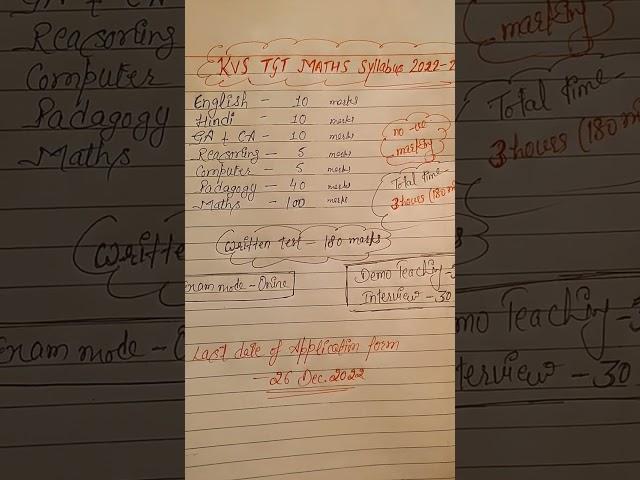 KVS TGT MATHS Syllabus 2022-2
English - 10 marks
Hindi - 10 marks
GA + CA - 10 marks
Reasoning - 5 marks
Computer - 5 marks
Padagogy - 40 marks
Maths - 100 marks
no -ve
marking
Total time-
3 hours (180 m
Written test - 180 marks
Exam mode - Online
Demo Teaching -
Interview - 30
Last date of Application form
- 26 Dec. 2022
Reasoning
Computer
Padagogy
Maths
Writte
Exam mode - O
marking
Total time-
3 hours (180 m
mo Teaching -3
terview - 30